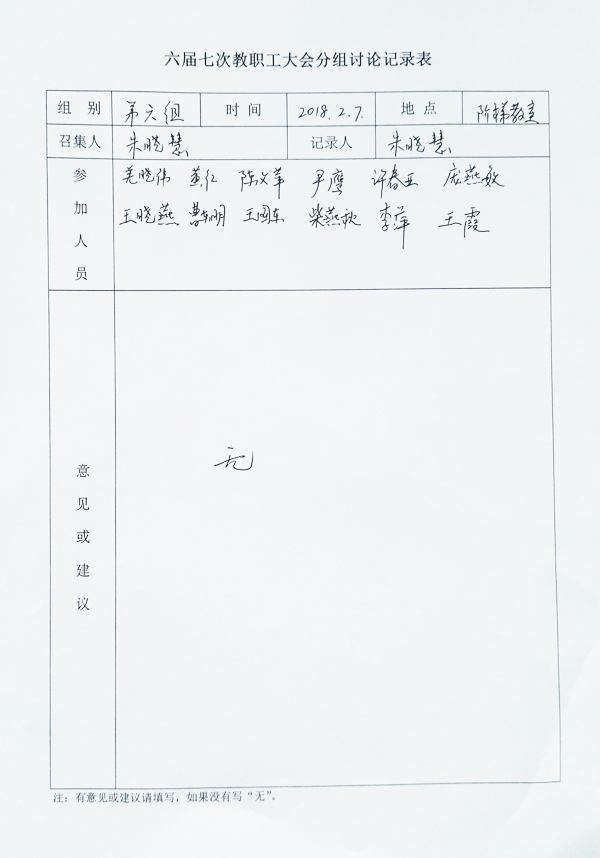 六届七次教职工大会分组讨论记录表
组 别 第六组 时 间 2018.2.7. 地 点 阶梯教室
召集人 朱晓慧 记录人 朱晓慧
参加人员
羌晓伟 黄红 陈文革 尹鹰 许春亚 庞燕敏
王晓燕 曹东明 王国东 柴燕秋 李萍 王霞
意见或建议
无
注：有意见或建议请填写，如果没有写“无”。